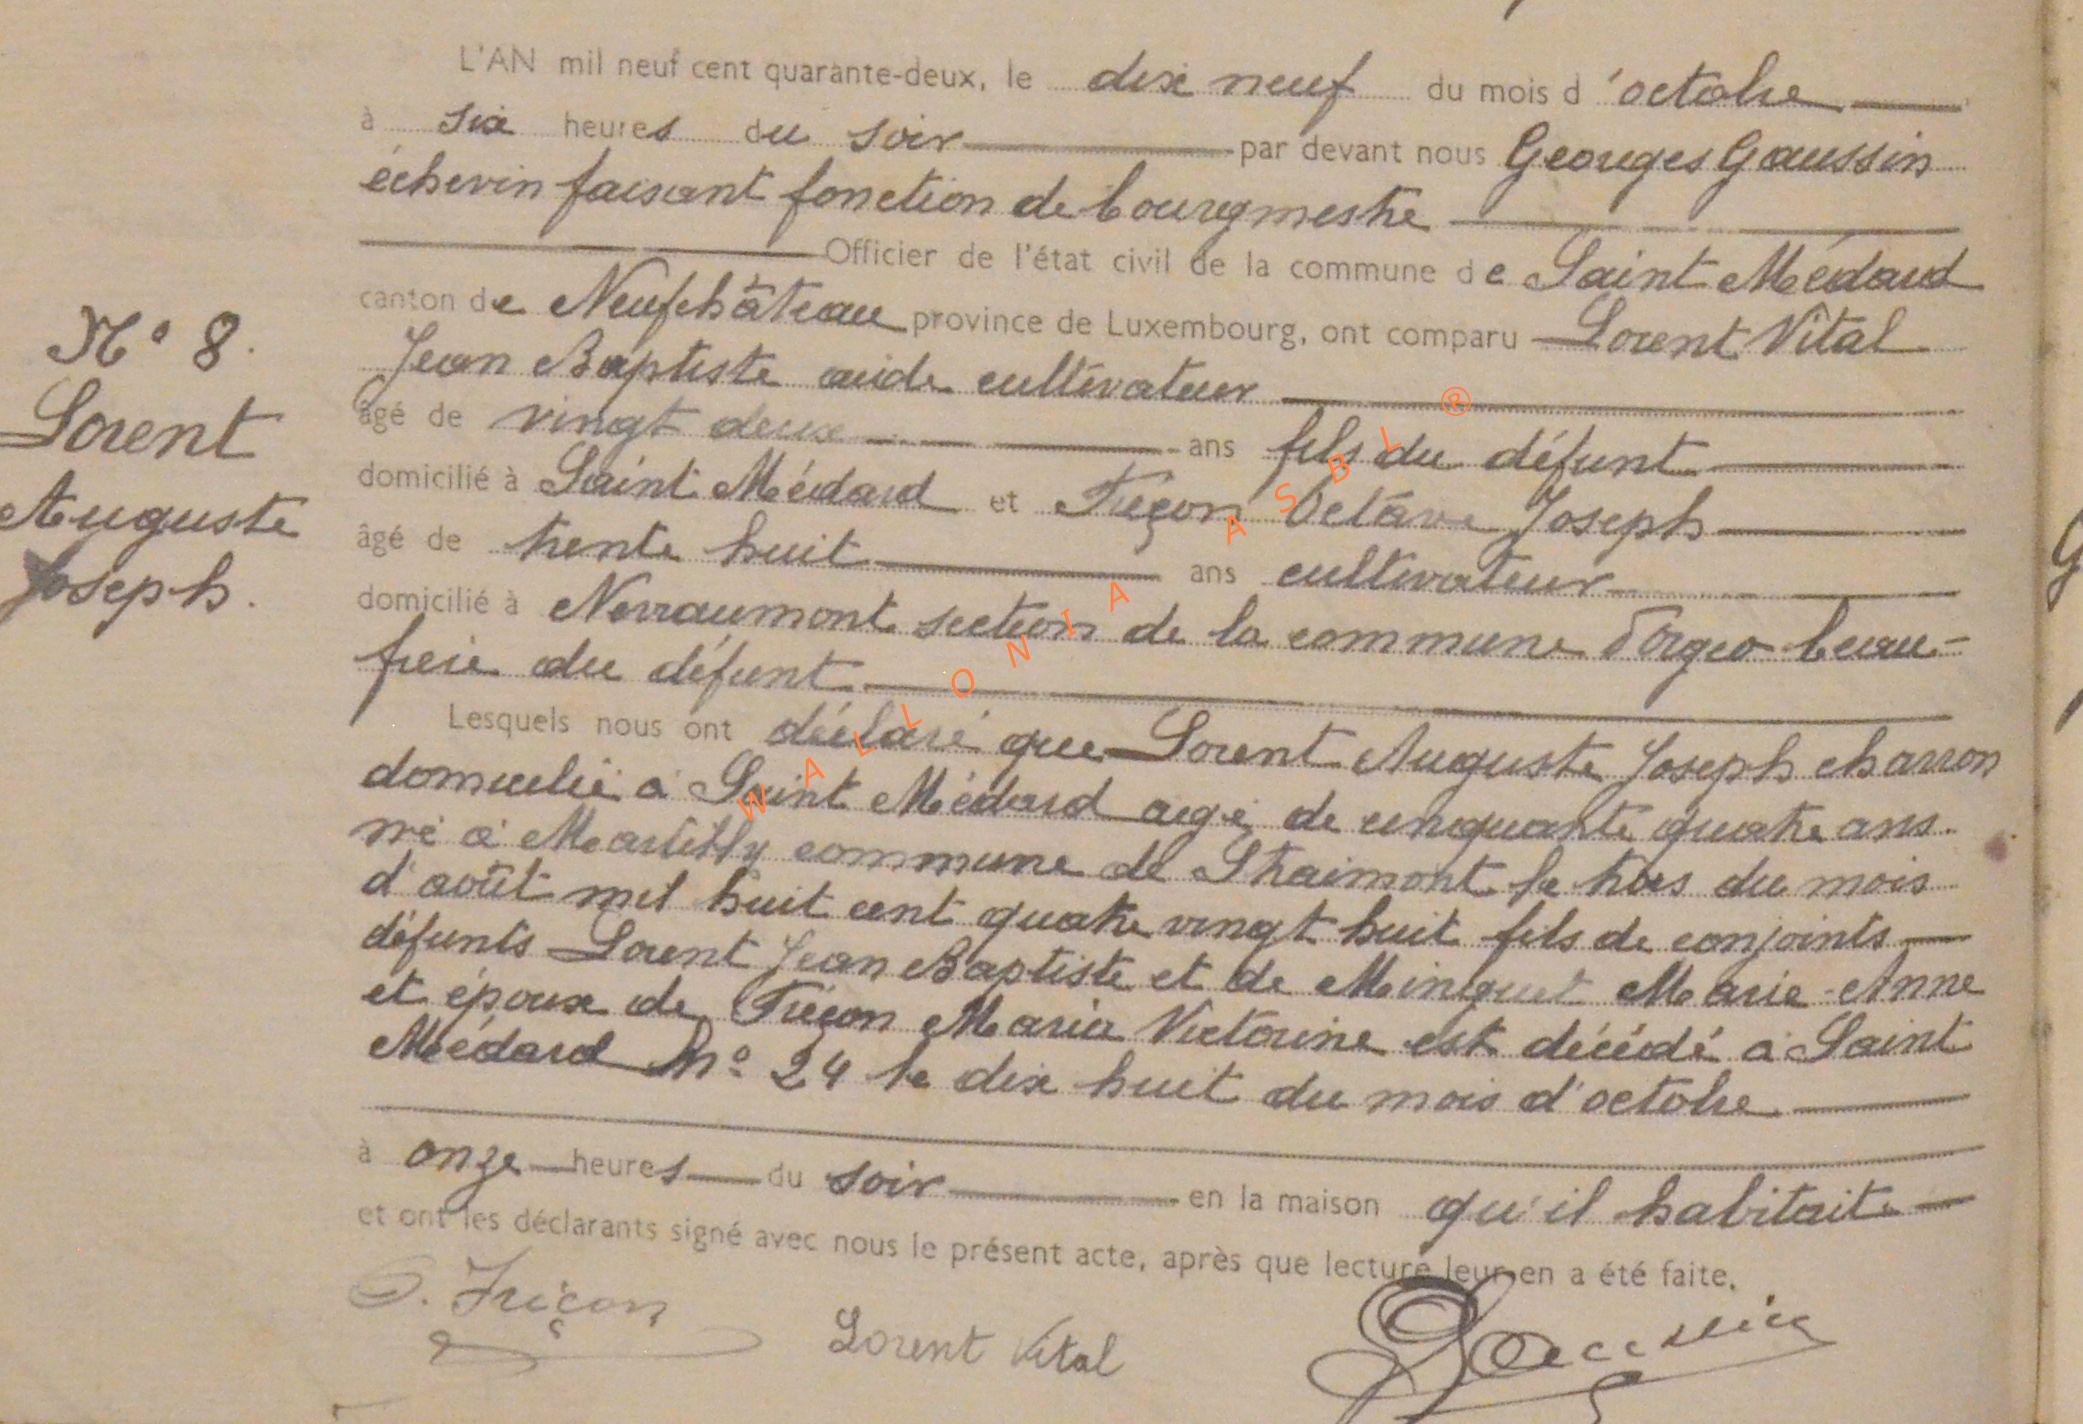 L'AN mil neuf cent quarante-deux, le dix neuf du mois d'octobre
à six heures du soir par devant nous Georges Gaussin
échevin faisant fonction de bourgmestre
Officier de l'état civil de la commune de Saint Médard
canton de Neufchâteau province de Luxembourg, ont comparu Lorent Vital
Jean Baptiste aide cultivateur
âgé de vingt deux ans fils du défunt
domicilié à Saint Médard et Friçon Octave Joseph
âgé de trente huit ans cultivateur
domicilié à Nevraumont section de la commune d'Orgeo beau-
frère du défunt
Lesquels nous ont déclaré que Lorent Auguste Joseph charron
domicilié à Saint Médard agé de cinquante quatre ans
né à Martilly commune de Straimont le trois du mois
d'août mil huit cent quatre vingt huit fils de conjoints
défunts Lorent Jean Baptiste et de Minguet Marie-Anne
et époux de Friçon Maria Victorine est décédé à Saint
Médard No 24 le dix huit du mois d'octobre
à onze heures du soir en la maison qu'il habitait
et ont les déclarants signé avec nous le présent acte, après que lecture leur en a été faite.
O. Friçon
Lorent Vital
Gaussin
No 8.
Lorent
Auguste
Joseph.
WALLONIA ASBL ®